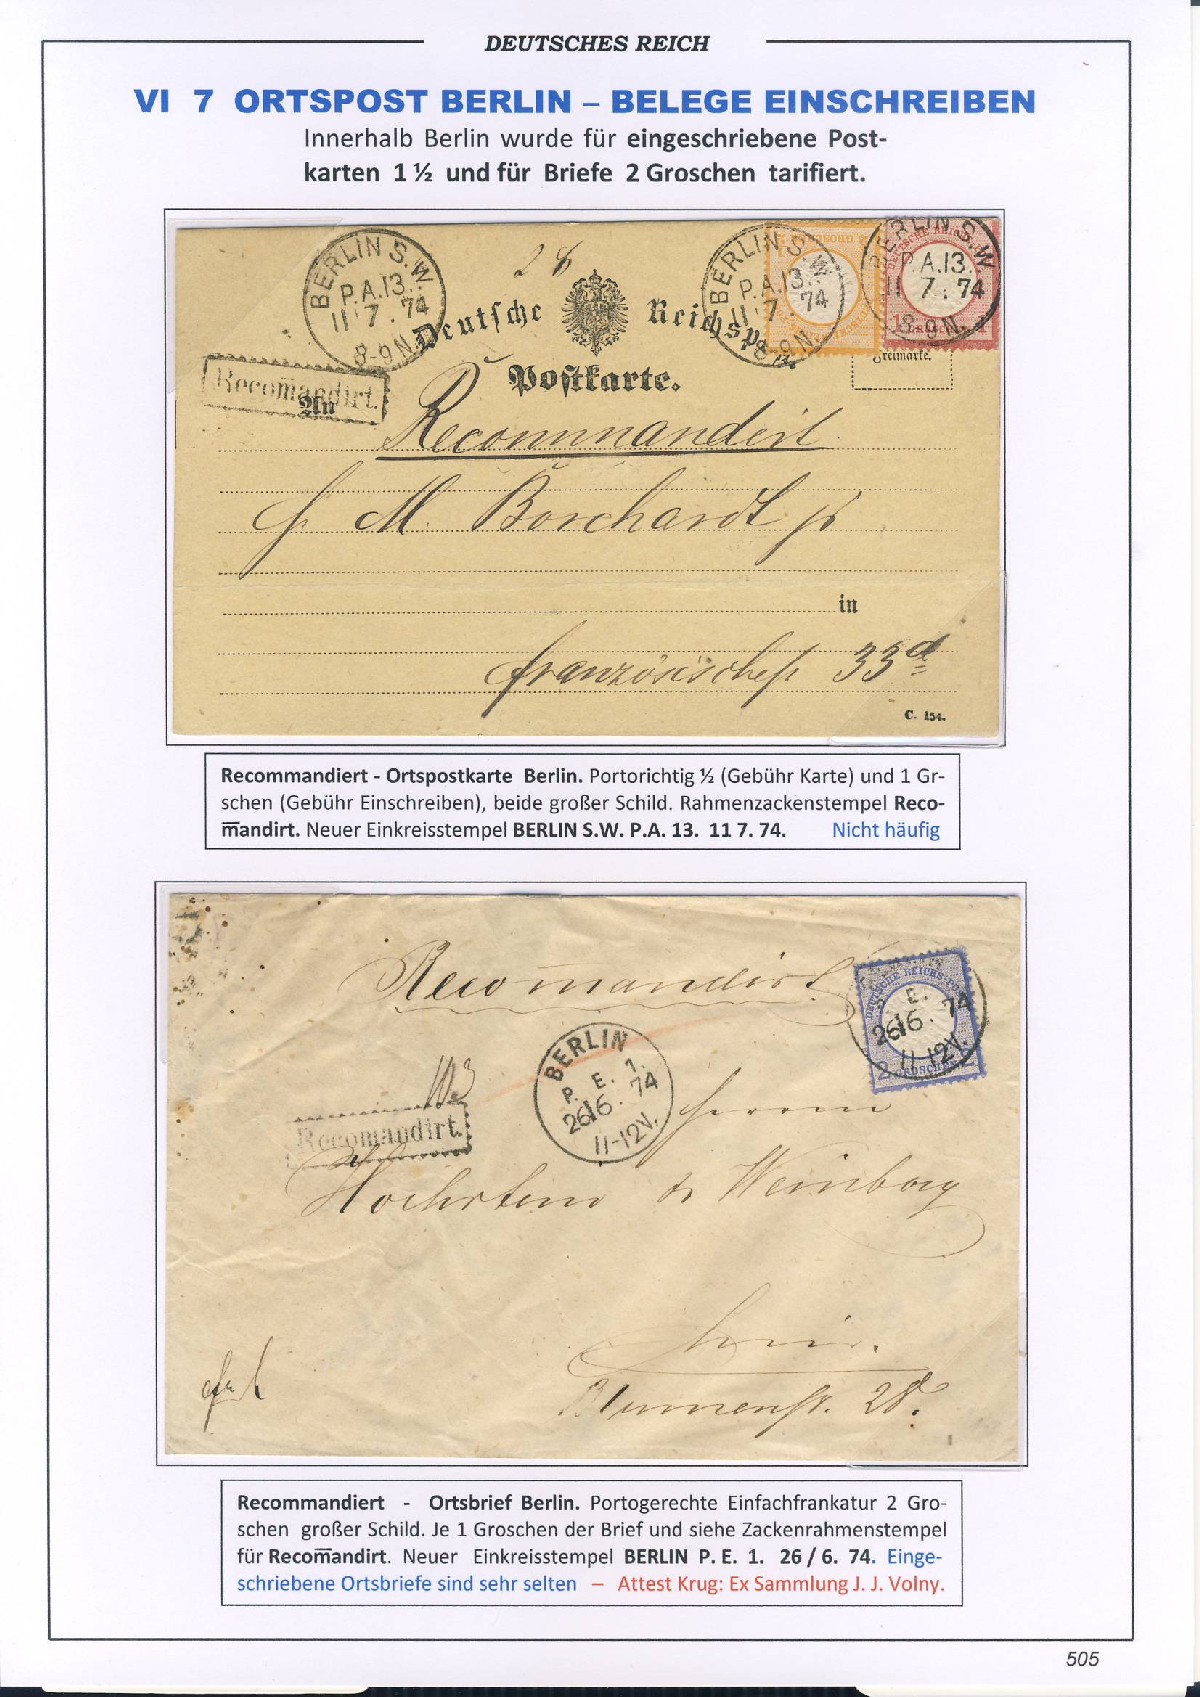 DEUTSCHES REICH
VI 7 ORTSPOST BERLIN – BELEGE EINSCHREIBEN
Innerhalb Berlin wurde für eingeschriebene Post-
karten 1 ½ und für Briefe 2 Groschen tarifiert.
BERLIN S.W.
P.A.13.
11 7. 74
8-9N.
28
BERLIN S.W.
P.A.13.
11 7. 74
8-9N.
BERLIN S.W.
P.A.13.
11 7. 74
8-9N.
Deutsche Reichspost.
Postkarte.
Freimarke.
Recom̅andirt.
An
Recommandirt
M. Borchardt
in
französischest 33d
C. 154.
Recommandiert - Ortspostkarte Berlin. Portorichtig ½ (Gebühr Karte) und 1 Gr-
schen (Gebühr Einschreiben), beide großer Schild. Rahmenzackenstempel Reco-
m̅andirt. Neuer Einkreisstempel BERLIN S.W. P.A. 13. 11 7. 74. Nicht häufig
Recom̅andirt
DEUTSCHE REICHS-POST
2 GROSCHEN 2
E.
26/6. 74
11-12V.
BERLIN
P. E. 1.
26/6. 74
11-12V.
Recomandirt.
Herrn
Hochstein & Weinberg
hier.
Blumenst. 28.
Recommandiert - Ortsbrief Berlin. Portogerechte Einfachfrankatur 2 Gro-
schen großer Schild. Je 1 Groschen der Brief und siehe Zackenrahmenstempel
für Recom̅andirt. Neuer Einkreisstempel BERLIN P. E. 1. 26 / 6. 74. Einge-
schriebene Ortsbriefe sind sehr selten – Attest Krug: Ex Sammlung J. J. Volny.
505